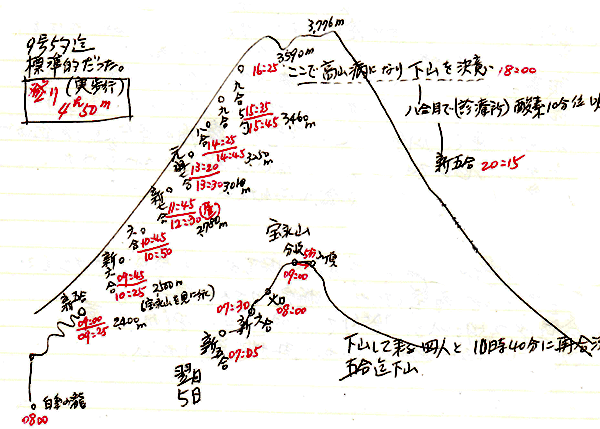 3,776m
9号5勺迄
標準的だった。
登り(実歩行)
4h 50m
3590m
16:25
ここで高山病になり下山を決意 18:00
八合目で(診療所)酸素10分位
新五合 20:15
九合五勺
15:25
15:45
3,460m
九合
14:25
14:45
3,250m
八合
13:20
13:30
3,010m
元祖七合
11:45
12:30
2,780m
新七合
10:45
10:50
新六合
09:45
10:25
2500m
(宝永山を見に行く)
新五合
09:00
09:25
2400m
08:00
宝永山
分岐
頂
09:00
火口
08:00
07:30
新六合
新五合
07:05
翌日
5日
下山して来る四人と 10時40分に再合流
五合迄下山